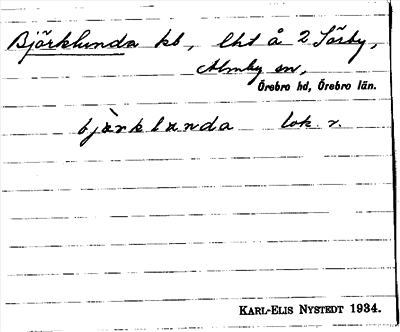 Björklunda kb, lht å 2 Sörby,
Almby sn,
Örebro hd, Örebro län.
bjò̤rklunda lok. r.
KARL-ELIS NYSTEDT 1934.